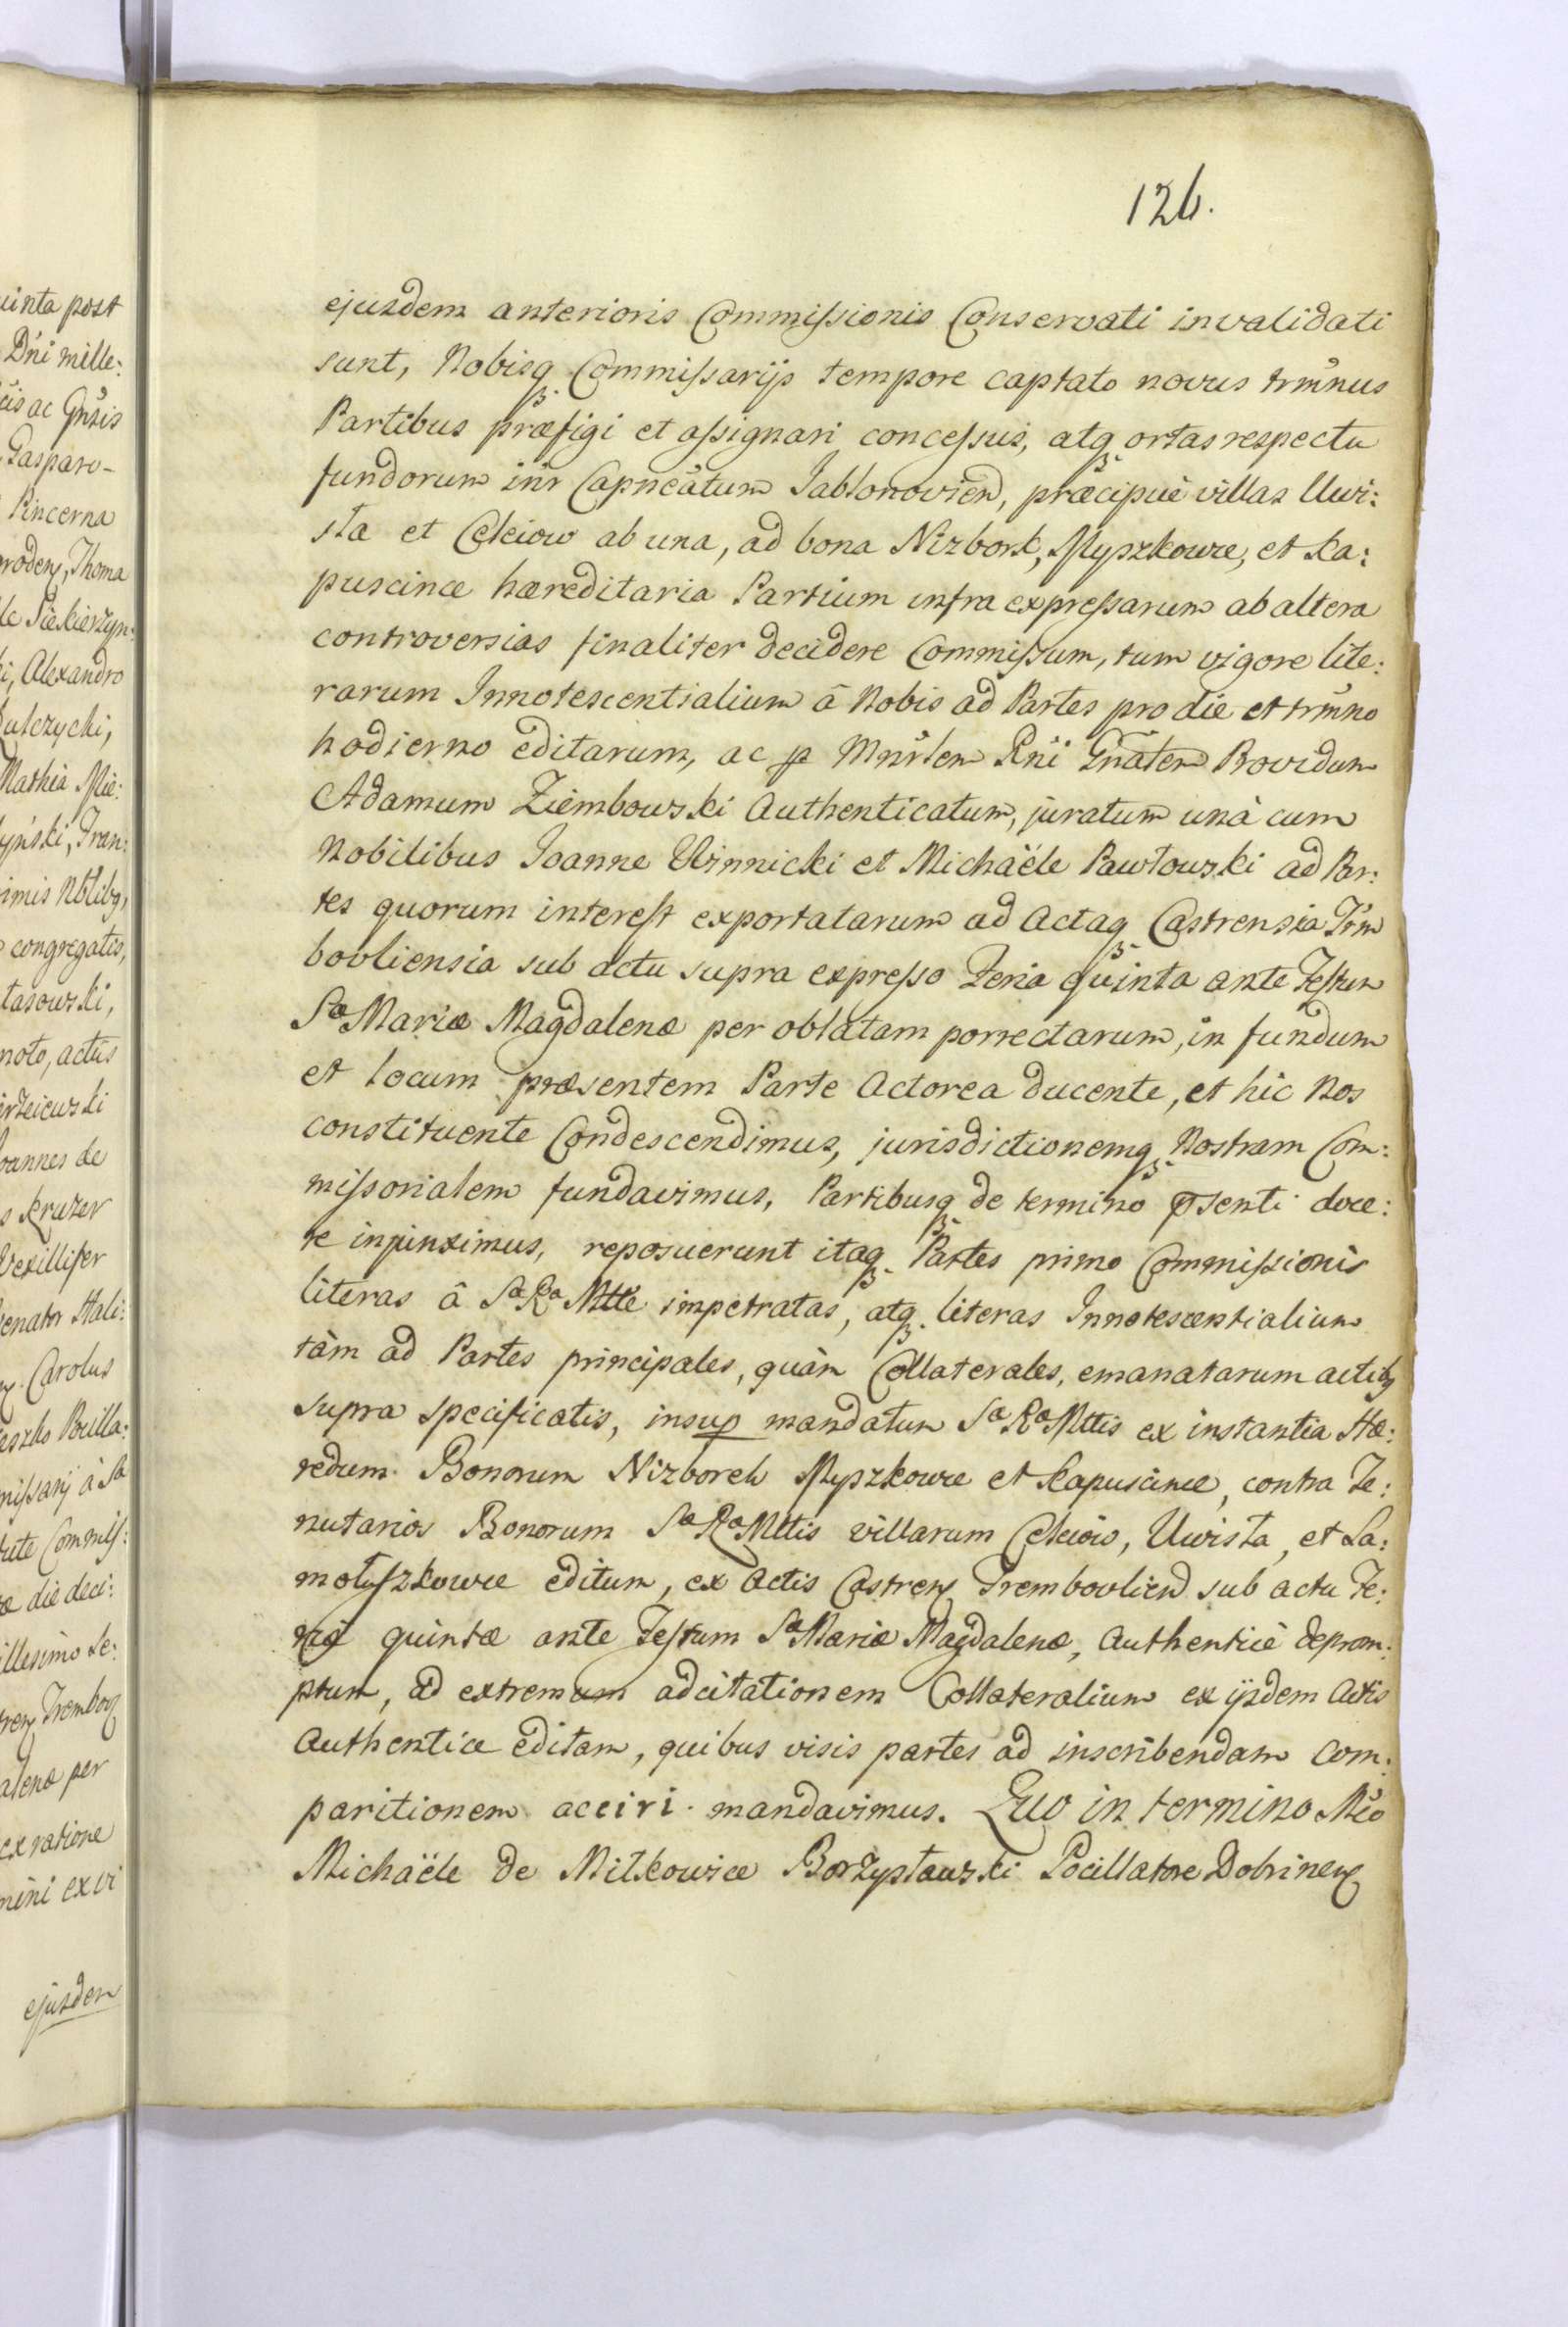 126.
ejusdem anterioris Commissionis Conservati invalidati
sunt, Nobisq Commissarijs tempore captato novus trminus
Partibus præfigi et assignari concessus, atq ortas respectu
fundorum intr Capneatum Jablonovien, præcipuè villas Uwi:
sta et Celeiow ab una, ad bona Nizbork, Myszkowce, et Ka:
puscince hæreditaria Partium infra expressarum ab altera
controversias finaliter decidere Commissum, tum vigore lite:
rarum Innotescentialium â Nobis ad Partes pro die et trmino
hodierno editarum, ac p Mnrlem Rni Gnalem Providum
Adamum Ziembowski Authenticatum, juratum unà cum
Nobilibus Joanne Winnicki et Michaële Pawłowski ad Par:
tes quorum interest exportatarum ad Actaq Castrensia Trm
bovliensia sub actu supra expresso Feria quinta ante Festum
Sæ Mariæ Magdalenæ per oblatam porrectarum, in fundum
et locum præsentem Parte Actorea ducente, et hic Nos
constituente Condescendimus, jurisdictionemq Nostram Com:
missorialem fundavimus, Partibusq de termino psenti doce:
re injunximus, reposuerunt itaq Partes primo Commissionis
literas â Sa Ra Mtte impetratas, atq literas Innotescentialium
tàm ad Partes principales, quàm Collaterales, emanatarum actibq
supra specificatis, insup mandatum Sæ Ræ Mttis ex instantia Hæ:
redum Bonorum Nizborek Myszkowce et Kapuscince, contra Te:
nutarios Bonorum Sæ Ræ Mttis villarum Celeiow, Uwista, et Sa:
motyszkowce editum, ex Actis Castren Trembovlien sub actu Fe:
riæ quintæ ante Festum Sæ Mariæ Magdalenæ, Authenticè deprom:
ptum, ad extremum adcitationem Collateralium ex ijsdem Actis
Authentice editam, quibus visis partes ad inscribendam Com:
paritionem acciri mandavimus. Quo in termino Mco
Michaële de Milkowice Borzysławski Pocillatore Dobrinen
uinta post
Dni mille:
cis ac Gnsis
Gasparo-
Pincerna
Thoma
de Siekierzyn:
ki, Alexandro
ulczycki,
Mathia Mie:
yński, Fran:
imis Nblibq,
congregatis,
tasowski,
noto, actûs
Joannes de
Kruzer
Vexillifer
Venator Hali:
Carolus
missarij â Sa
Commiss:
æ die deci:
illesimo Se:
Trembov
alenæ per
ex ratione
mini ex vi
ejusdem